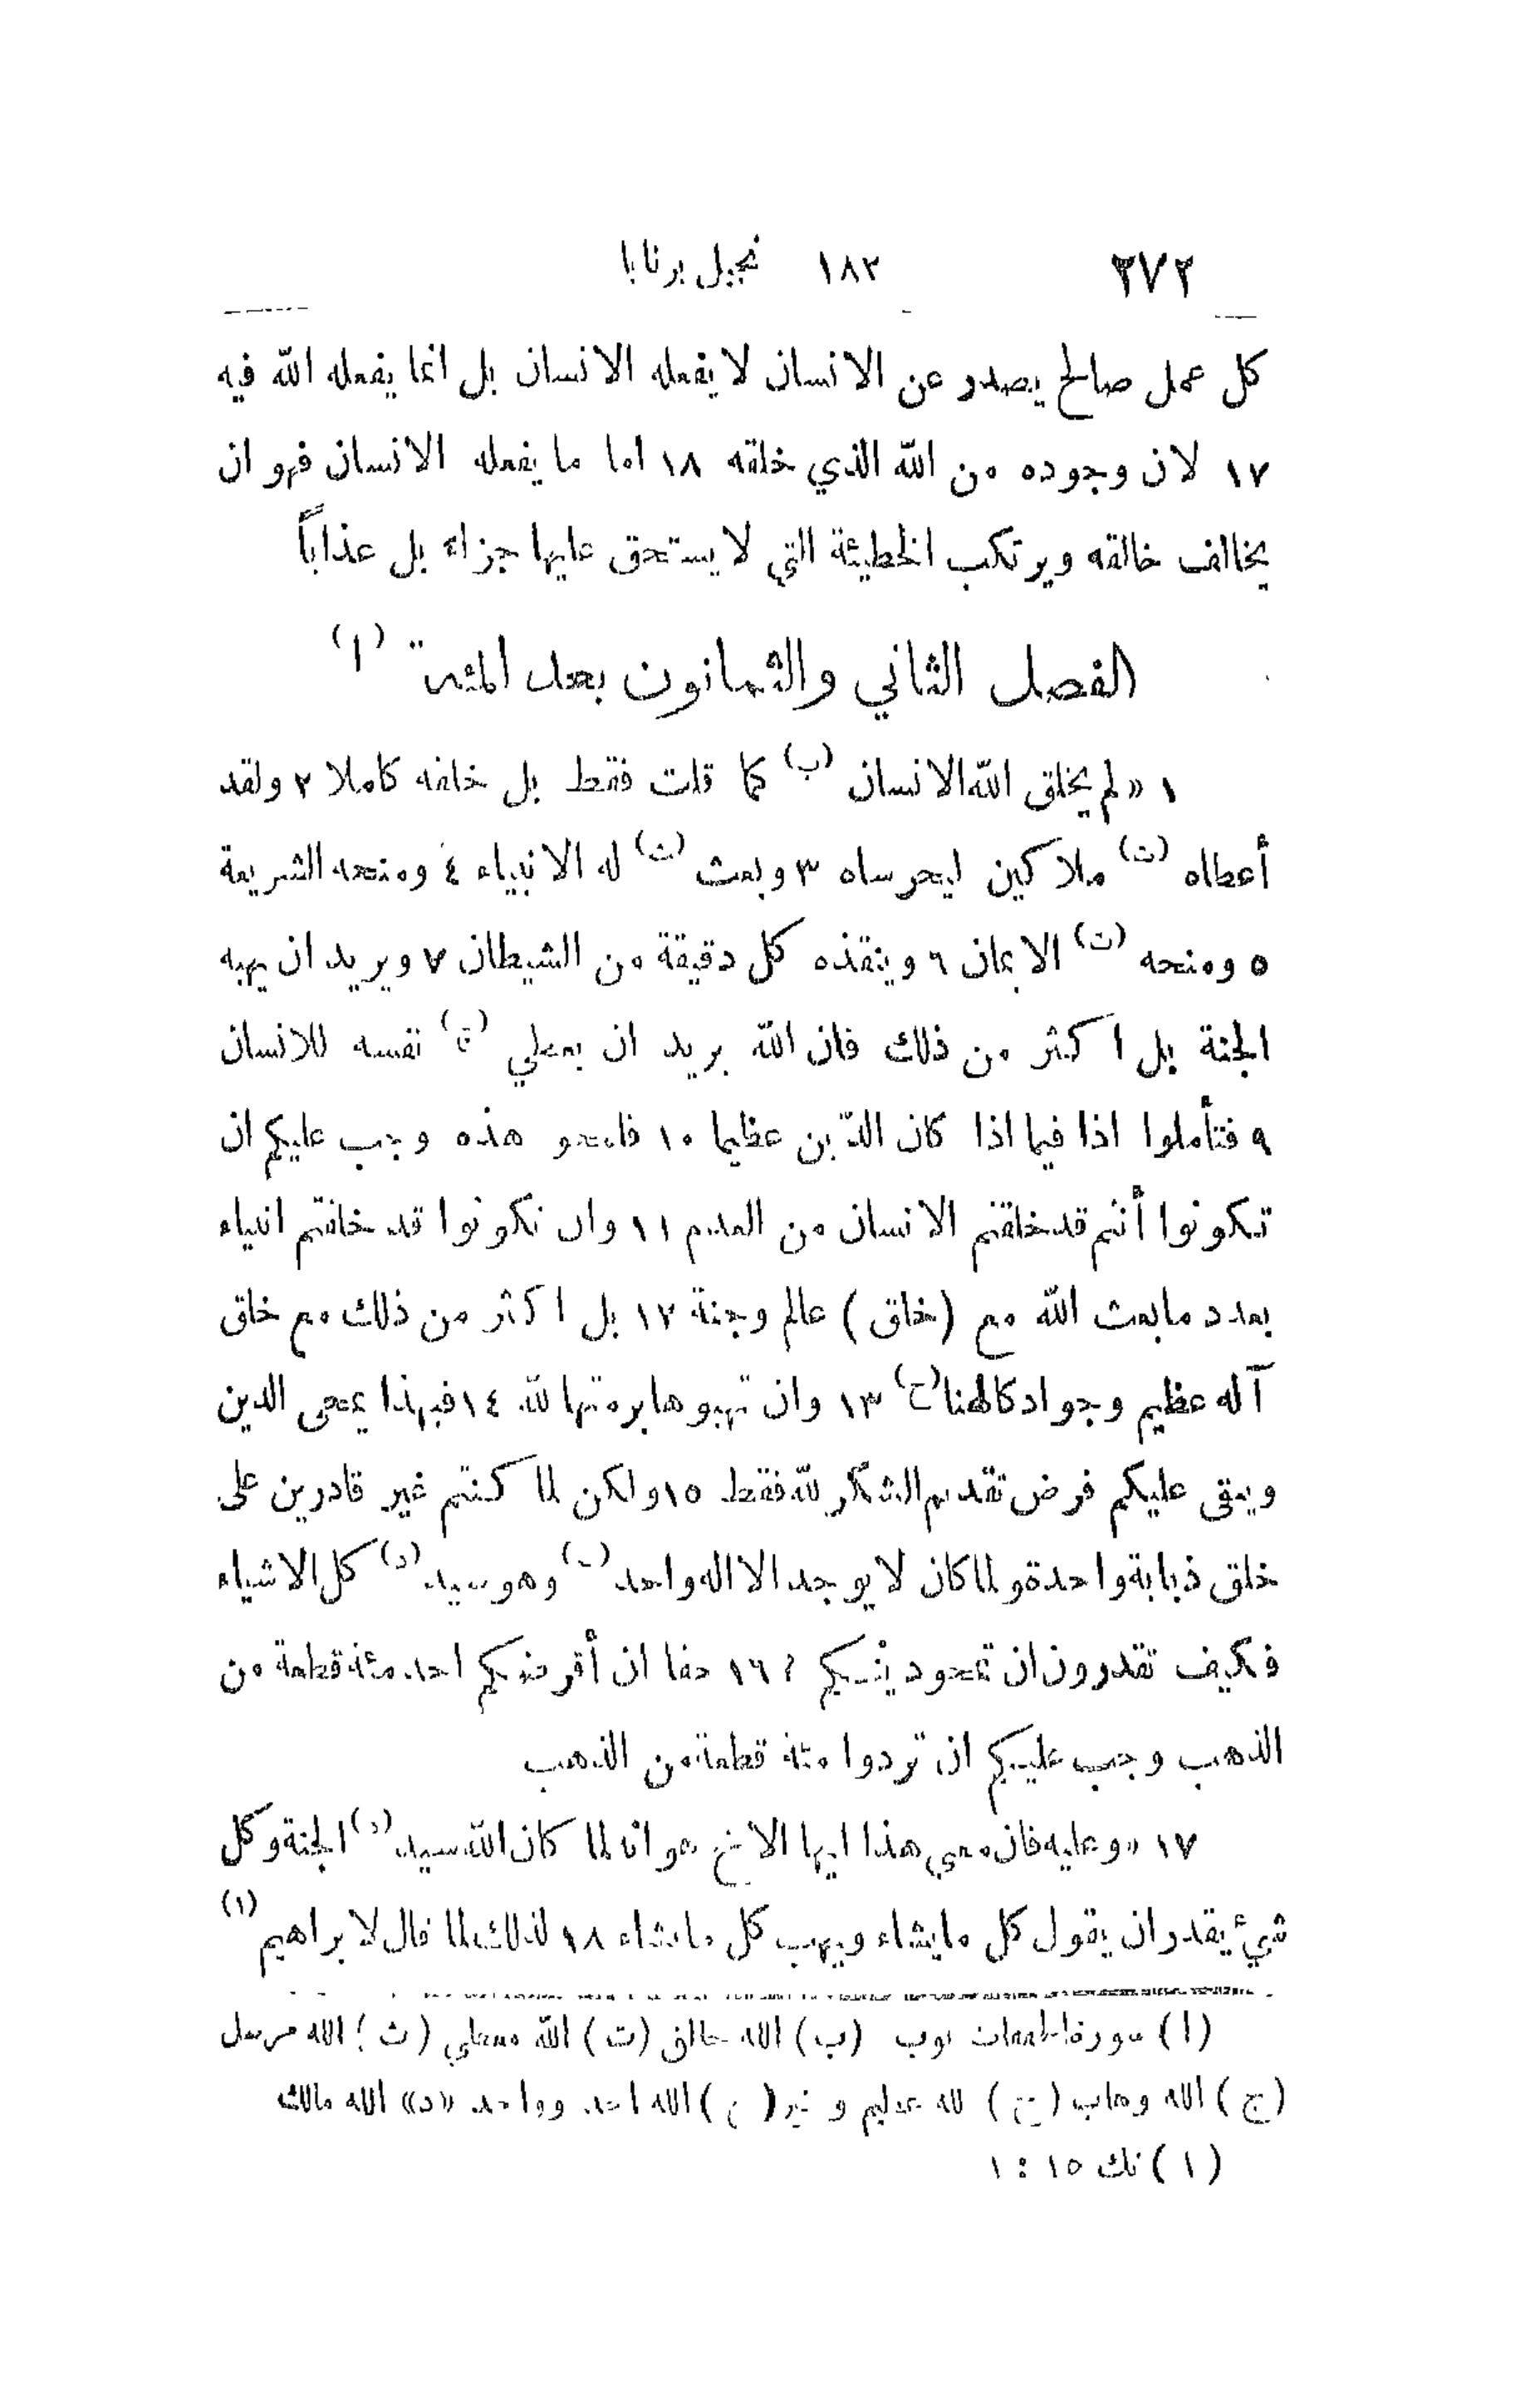 ٢٧٢ ١٨٢ نجيل برنابا
كل عمل صالح يصدر عن الانسان لا يفعله الانسان بل انما يفعله الله فيه
١٧ لان وجوده من الله الذي خلقه ١٨ اما ما يفعله الانسان فهو ان
يخالف خالقه ويرتكب الخطيئة التي لا يستحق عليها جزاء بل عذاباً
الفصل الثاني والثمانون بعد المئة (أ)
١ « لم يخلق الله الانسان (ب) كما قلت فقط بل خلقه كاملا ٢ ولقد
أعطاه (ت) ملاكين ليحرساه ٣ وبعث (ث) له الانبياء ٤ ومنحه الشريعة
٥ ومنحه (ت) الايمان ٦ وينقذه كل دقيقة من الشيطان ٧ ويريد ان يهبه
الجنة بل اكثر من ذلك فان الله يريد ان يعطي نفسه للانسان
٩ فتأملوا اذا فيما اذا كان الدّين عظيما ١٠ فلمحو هذه وجب عليكم ان
تكونوا أنتم قد خلقتم الانسان من العدم ١١ وان تكونوا قد خلقتم انبياء
بعدد ما بعث الله مع (خلق) عالم وجنة ١٢ بل اكثر من ذلك مع خلق
آله عظيم وجواد كالهنا (ح) ١٣ وان تهبوها برمتها لله ١٤ فبهذا يمحى الدين
ويبقى عليكم فرض تقديم الشكر لله فقط ١٥ ولكن لما كنتم غير قادرين على
خلق ذبابة واحدة ولما كان لا يوجد الا اله واحد وهو سيد (د) كل الاشياء
فكيف تقدرون ان تمحو دينكم ؟ ١٦ حقا ان أقرضكم احد مئة قطعة من
الذهب وجب عليكم ان تردوا مئة قطعة من الذهب
١٧ « وعليه فان معنى هذا ايها الاخ هو انه لما كان الله سيد (د) الجنة وكل
شيء يقدر ان يقول كل ما يشاء ويهب كل ما يشاء ١٨ لذلك لما قال لابراهيم (١)
(أ) سورة (ب) الله خالق (ت) الله معطي (ث) الله مرسل
(ج) الله وهاب (ح) لله عظيم و الله احد وواحد «د» الله مالك
(١) تك ١٥ : ١